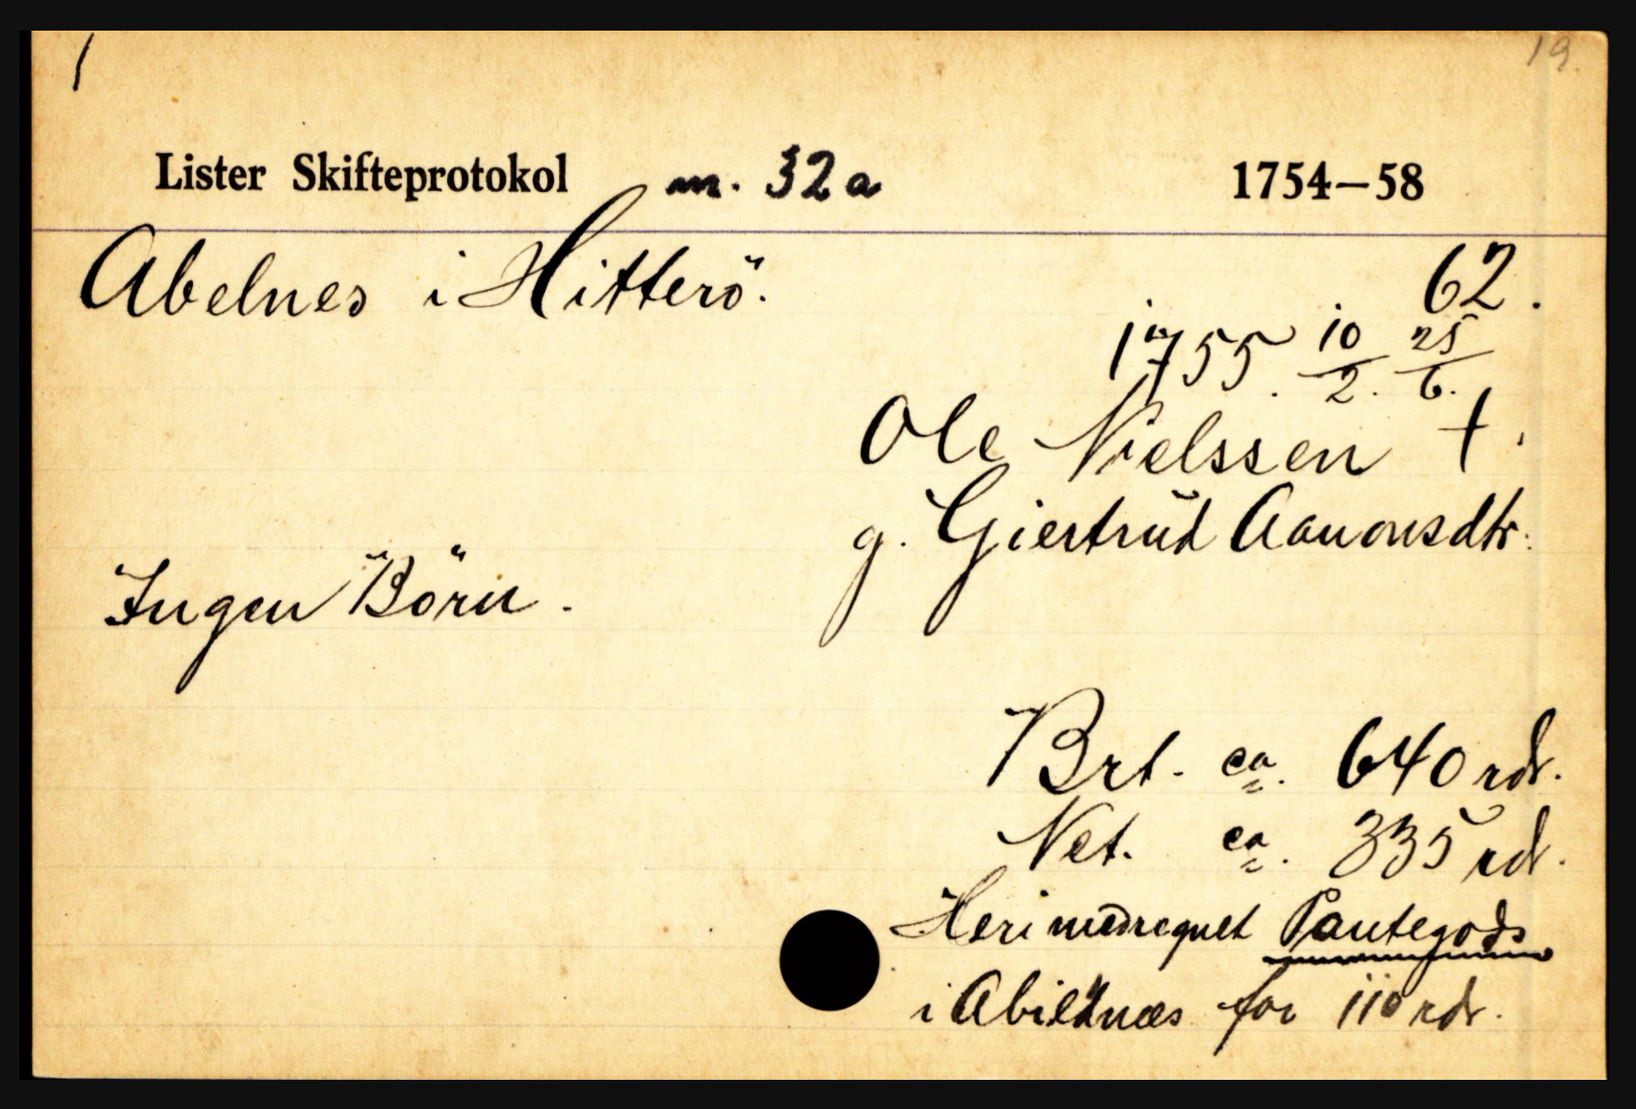 1
19.
Lister Skifteprotokol nr. 32a 1754–58
Abelnes i Hitterö. 62.
1755. 10/2. 25/6.
Ole Nielssen †.
g. Giertrud Aanonsdtr.
Ingen Börn.
Brt. ca. 640 rdr.
Net. ca. 335 rdr.
Heri medregnet Pantegods
i Abildnæs for 110 rdr.